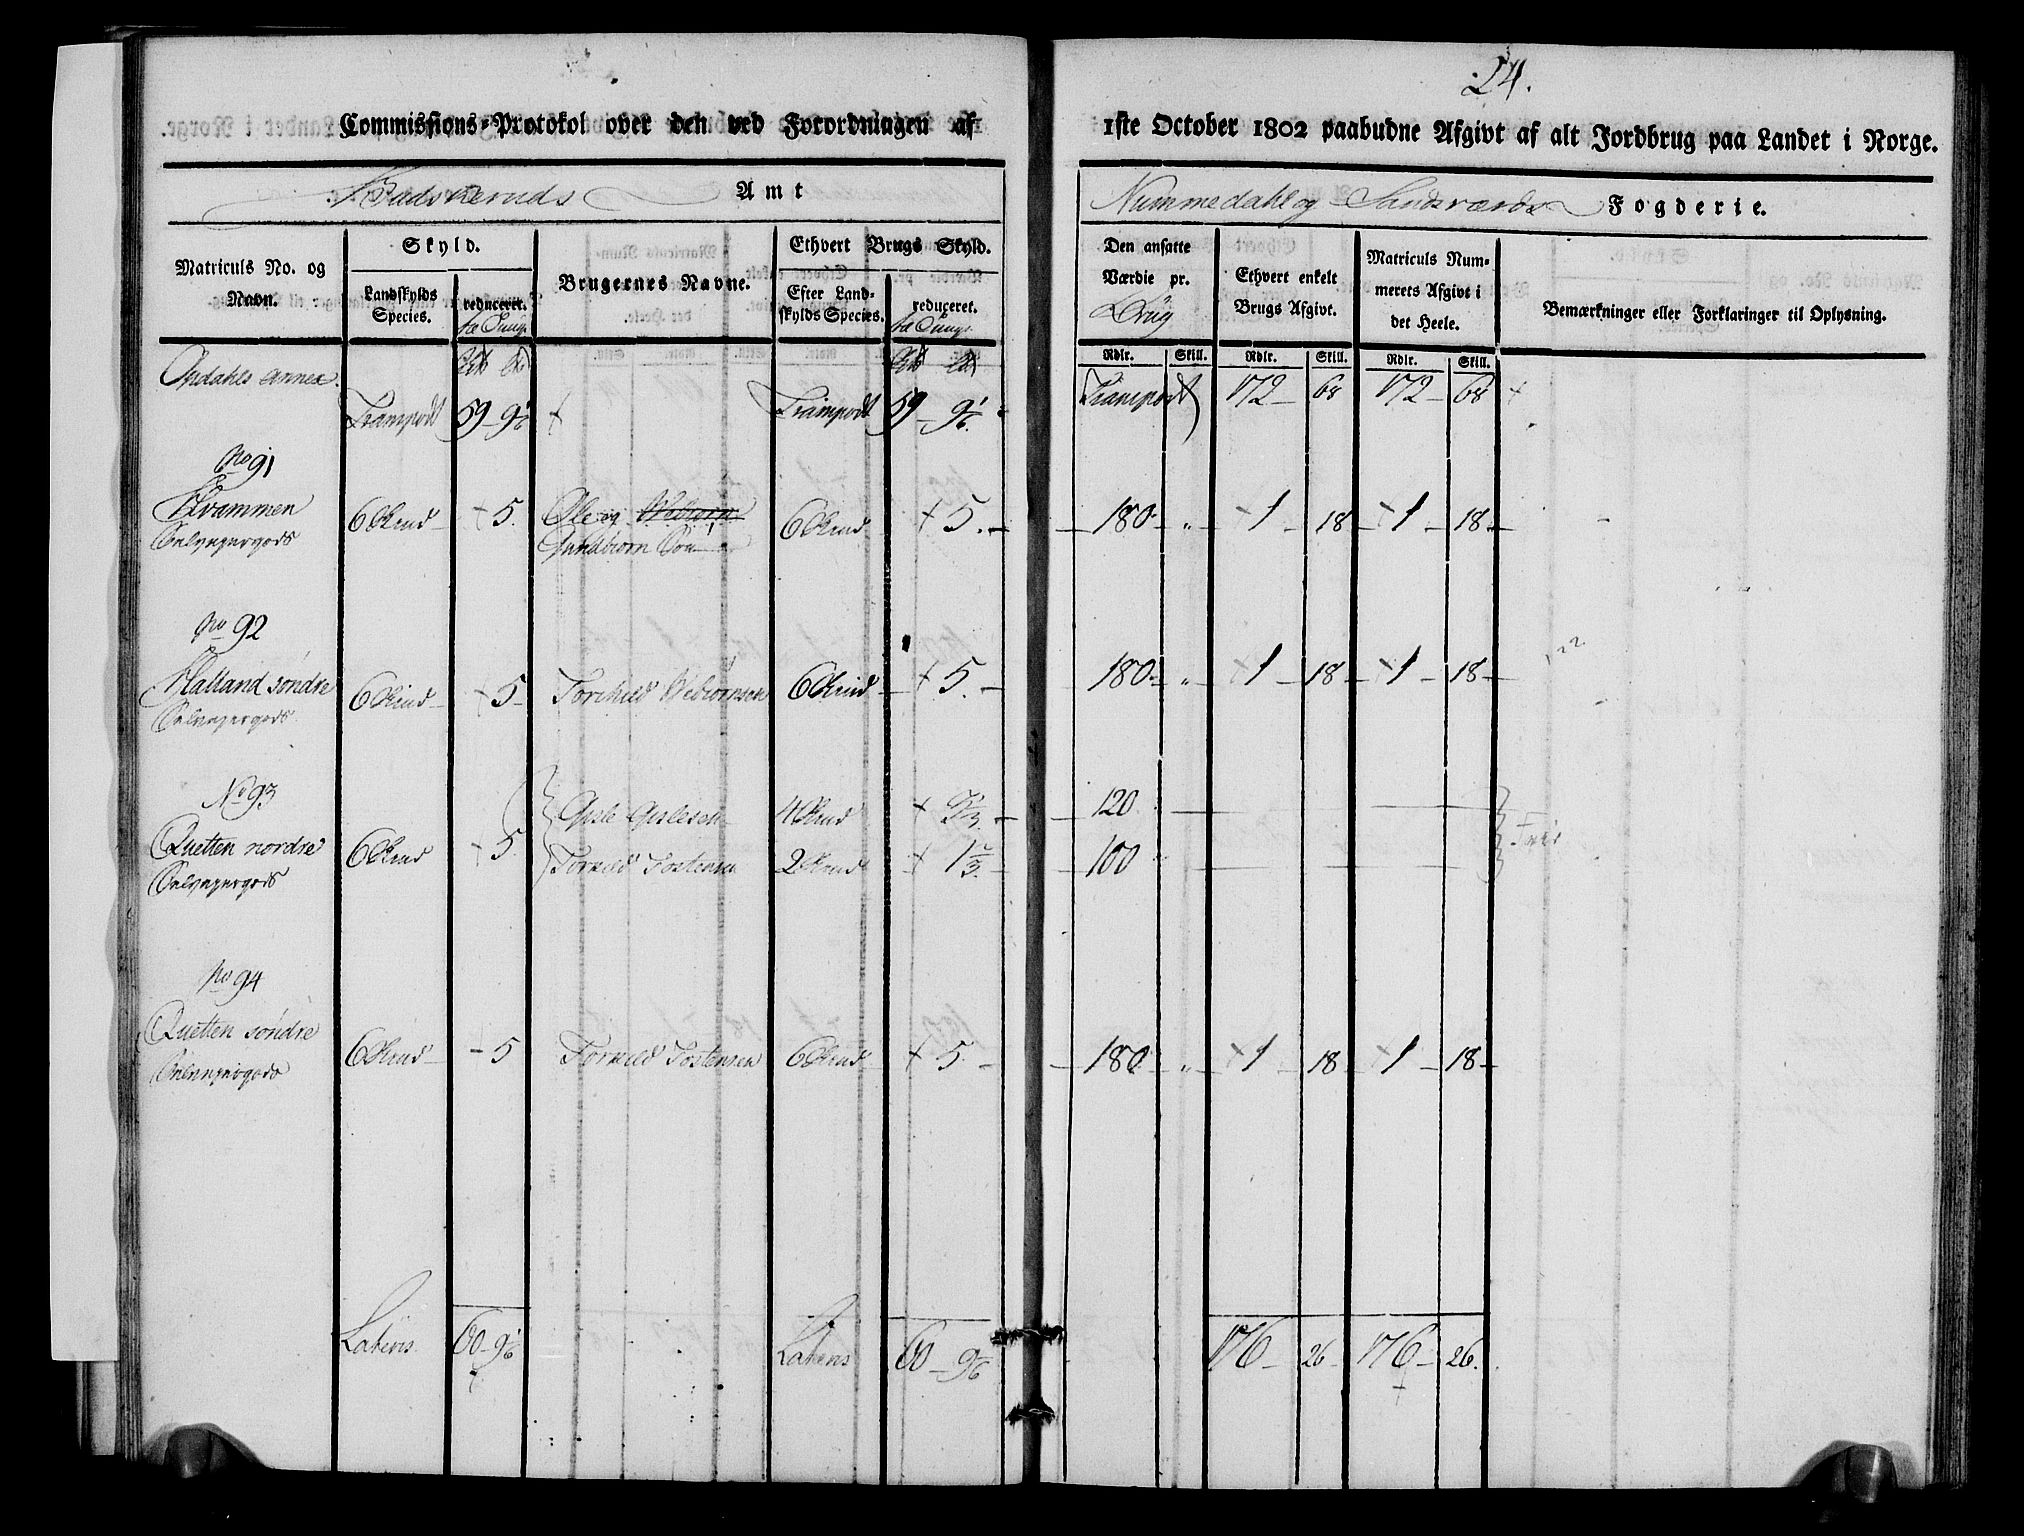 24.
Commissions-Protokol over den ved Forordningen af 1ste October 1802 paabudne Afgivt af alt Jordbrug paa Landet i Norge.
Budskeruds Amt Nummedahl og Sandsværds Fogderie.
Matriculs No. og Navn.
Skyld.
Landskylds Species.
reduceret.
Brugernes Navne.
Ethvert Brugs Skyld.
Efter Landskylds Species.
reduceret.
Den ansatte Værdie pr.
Brug
Ethvert enkelt Brugs Afgivt.
Matriculs Nummerets Afgivt i det Heele.
Bemærkninger eller Forklaringer til Oplysning.
Rdlr. Skill. Rdlr. Skill. Rdlr. Skill.
Opdahls annex
Transport 59 - 9 1/6 Transport 59 - 9 1/6 Transport 172 - 68 172 - 68
No 91
Kvammen 6 Hud - 5. Ole og 6 Hud 5. - 180 - " 1 - 18 - 1 - 18 -
Selveyergods Gundbiørn
No 92
Halland søndre 6 Hud - 5 - Torchild Vebiørnsen 6 Hud - 5. - 180 - " 1 - 18 - 1 - 18 -
Selveyergods
No 93
Gisle Gislesen 4 Hud 3 1/3. - 120
Quetten nordre 6 Hud 5. Torkild Tostensen 2 Hud 1 2/3. - 100 Frie
Selveyergods
No 94
Quetten søndre 6 Hud - 5 Torkild Tostensen 6 Hud 5. - 180 - " 1 - 18 - 1 - 18 -
Selveyergods
Lateris 60 - 9 1/6 Lateris 60 - 9 1/6 176 - 26 - 176 - 26.